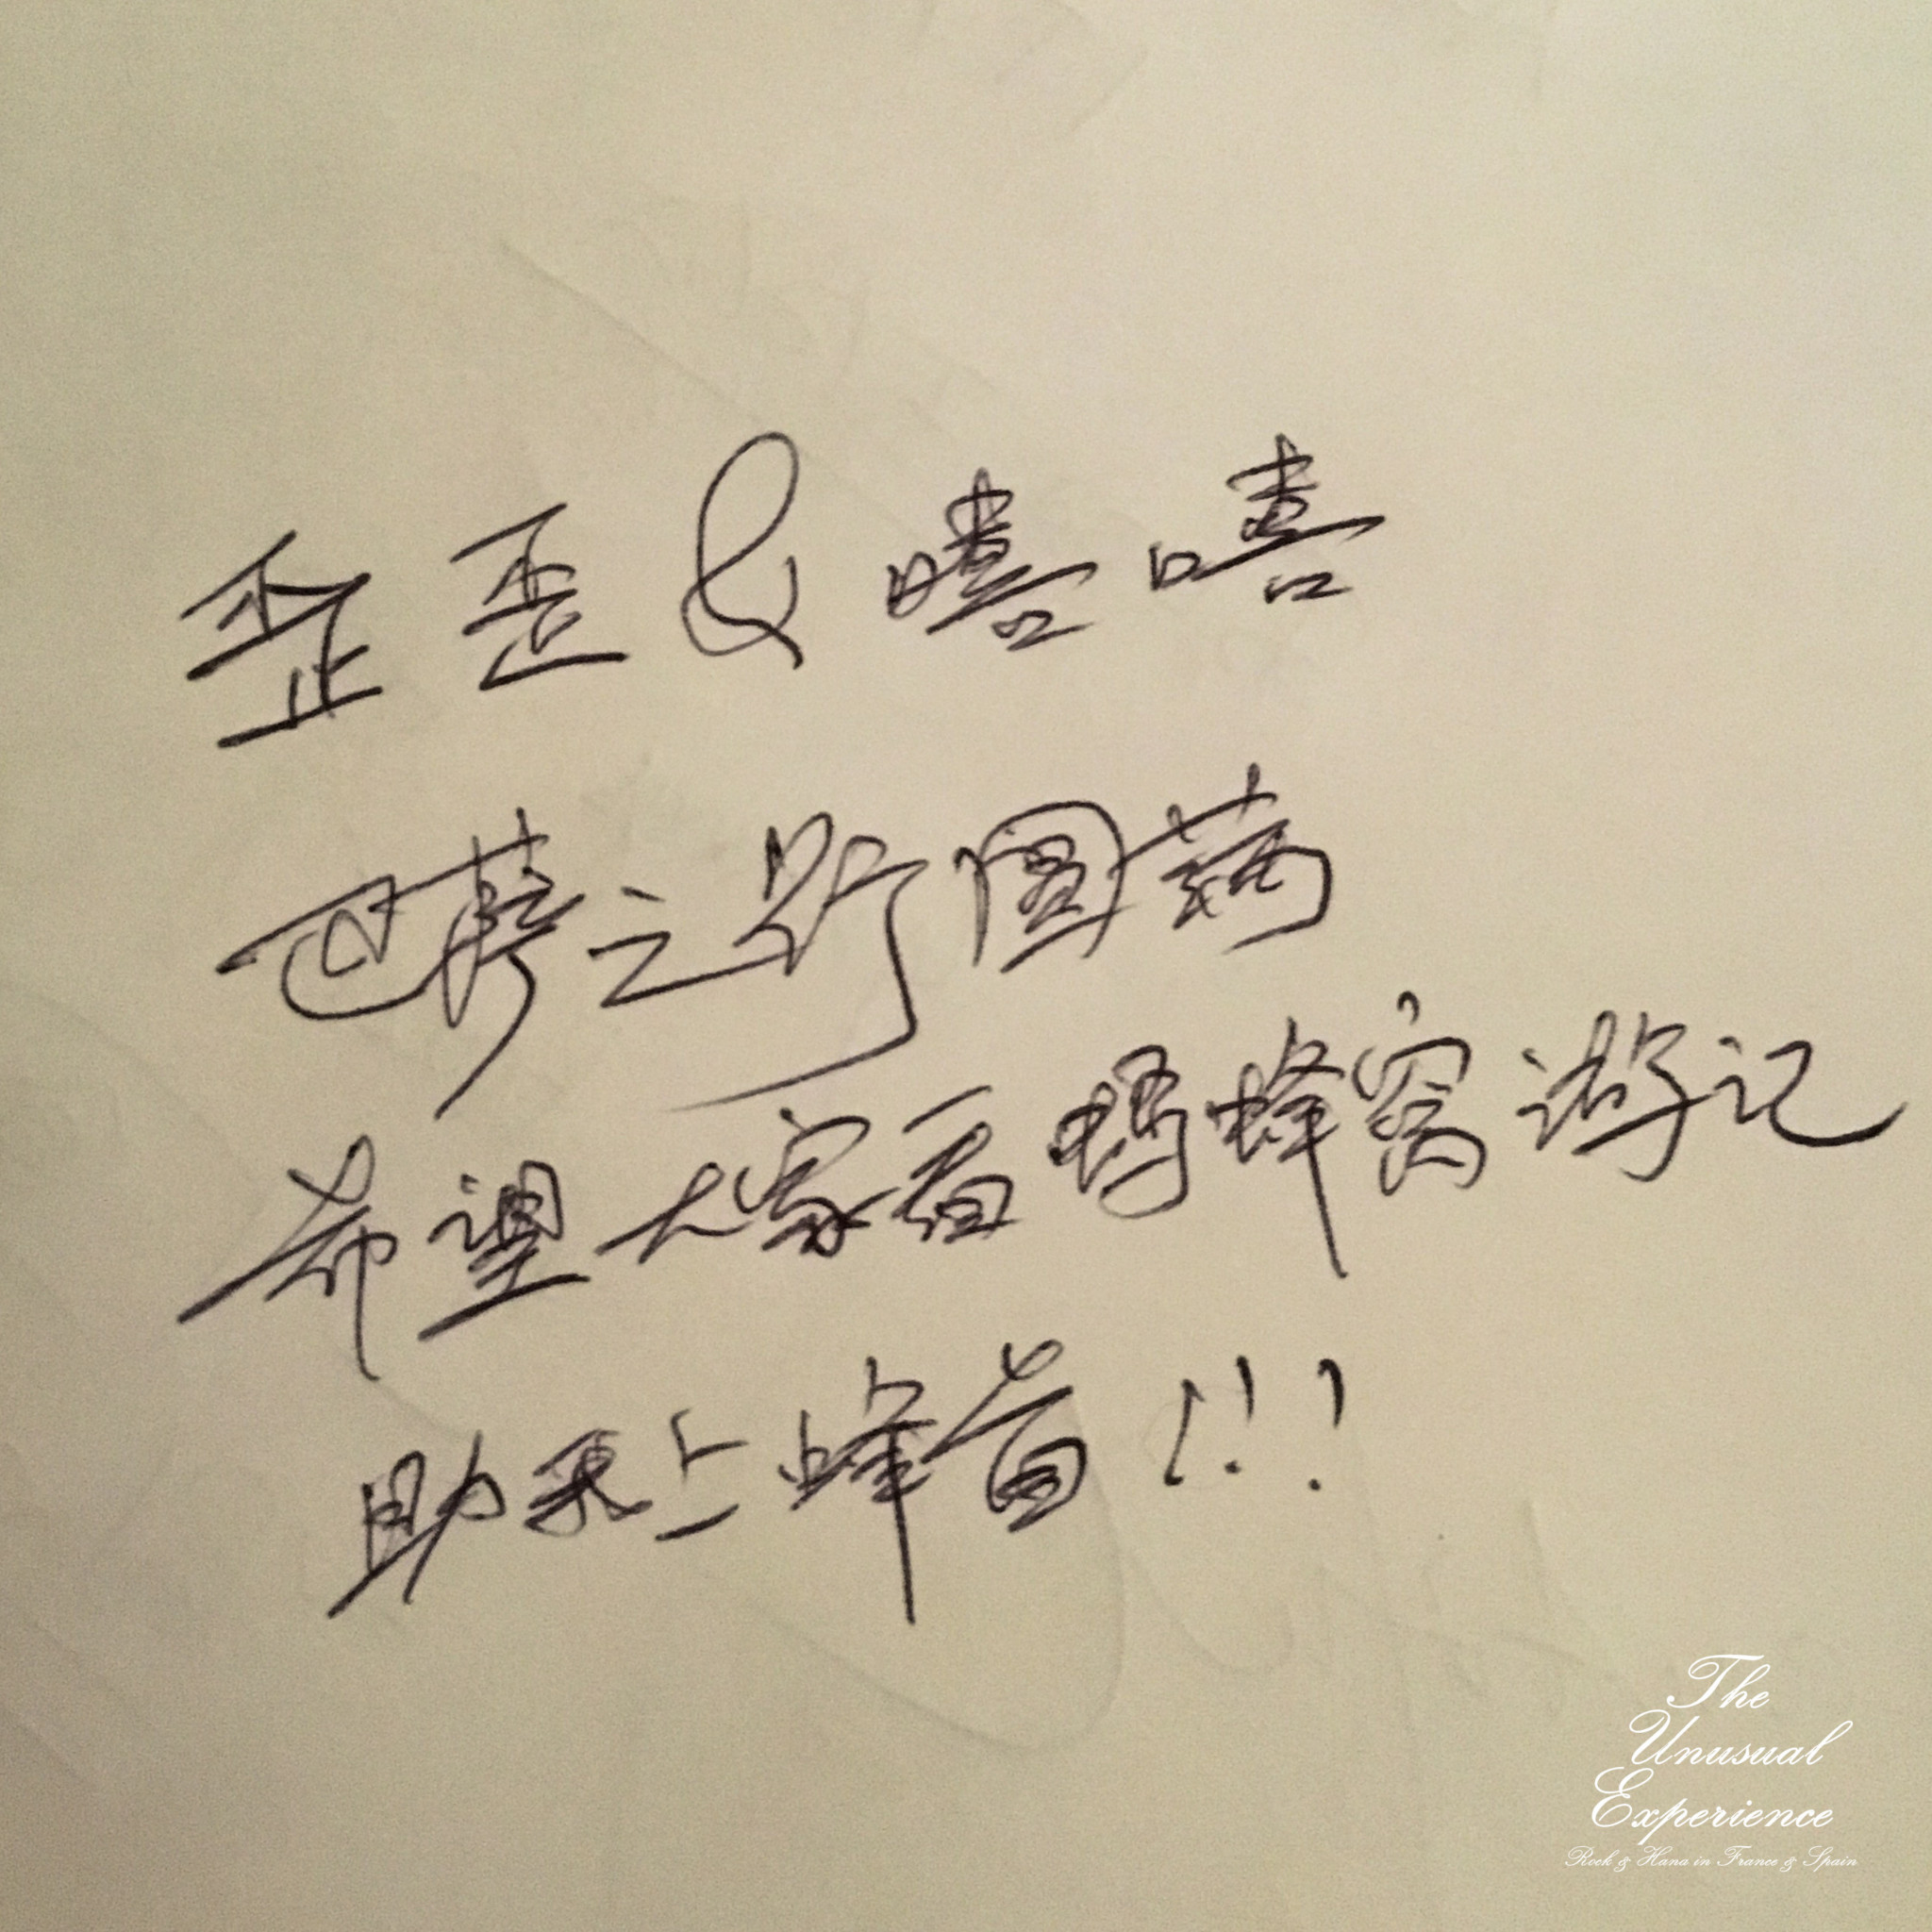 歪歪&嘻嘻
巴萨之行圆满
希望大家看蚂蜂窝游记
助我上蜂首!!!
The
Unusual
Experience
Rock & Hana in France & Spain